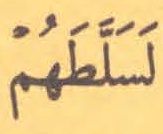 لَسَلَّطَهُمْ